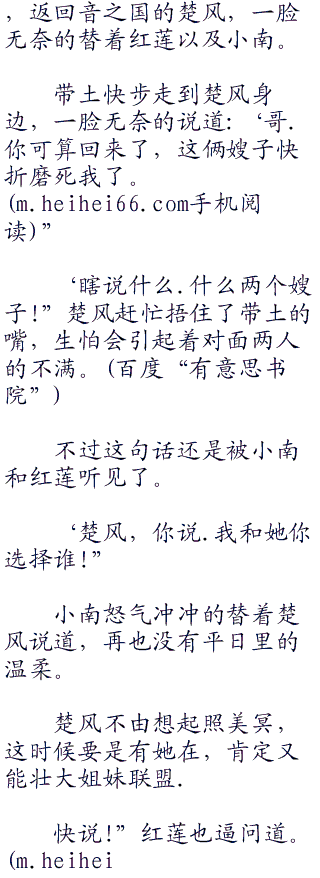 ，返回音之国的楚风，一脸
无奈的替着红莲以及小南。
带土快步走到楚风身
边，一脸无奈的说道:‘哥.
你可算回来了，这俩嫂子快
折磨死我了。
(m.heihei66.com手机阅
读)”
‘瞎说什么.什么两个嫂
子!”楚风赶忙捂住了带土的
嘴，生怕会引起着对面两人
的不满。(百度“有意思书
院”)
不过这句话还是被小南
和红莲听见了。
‘楚风，你说.我和她你
选择谁!”
小南怒气冲冲的替着楚
风说道，再也没有平日里的
温柔。
楚风不由想起照美冥，
这时候要是有她在，肯定又
能壮大姐妹联盟.
快说!”红莲也逼问道。
(m.heihei